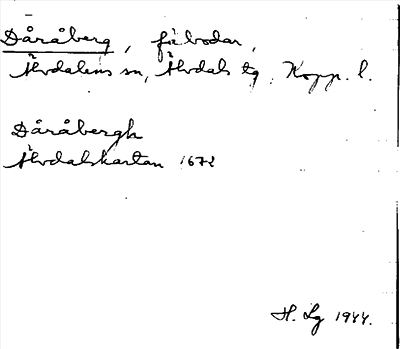 Dåråberg, fäbodar,
Älvdalens sn, Älvdals tg, Kopp. l.
Dåråbergh
Älvdalskartan 1672
H. Lg 1944.